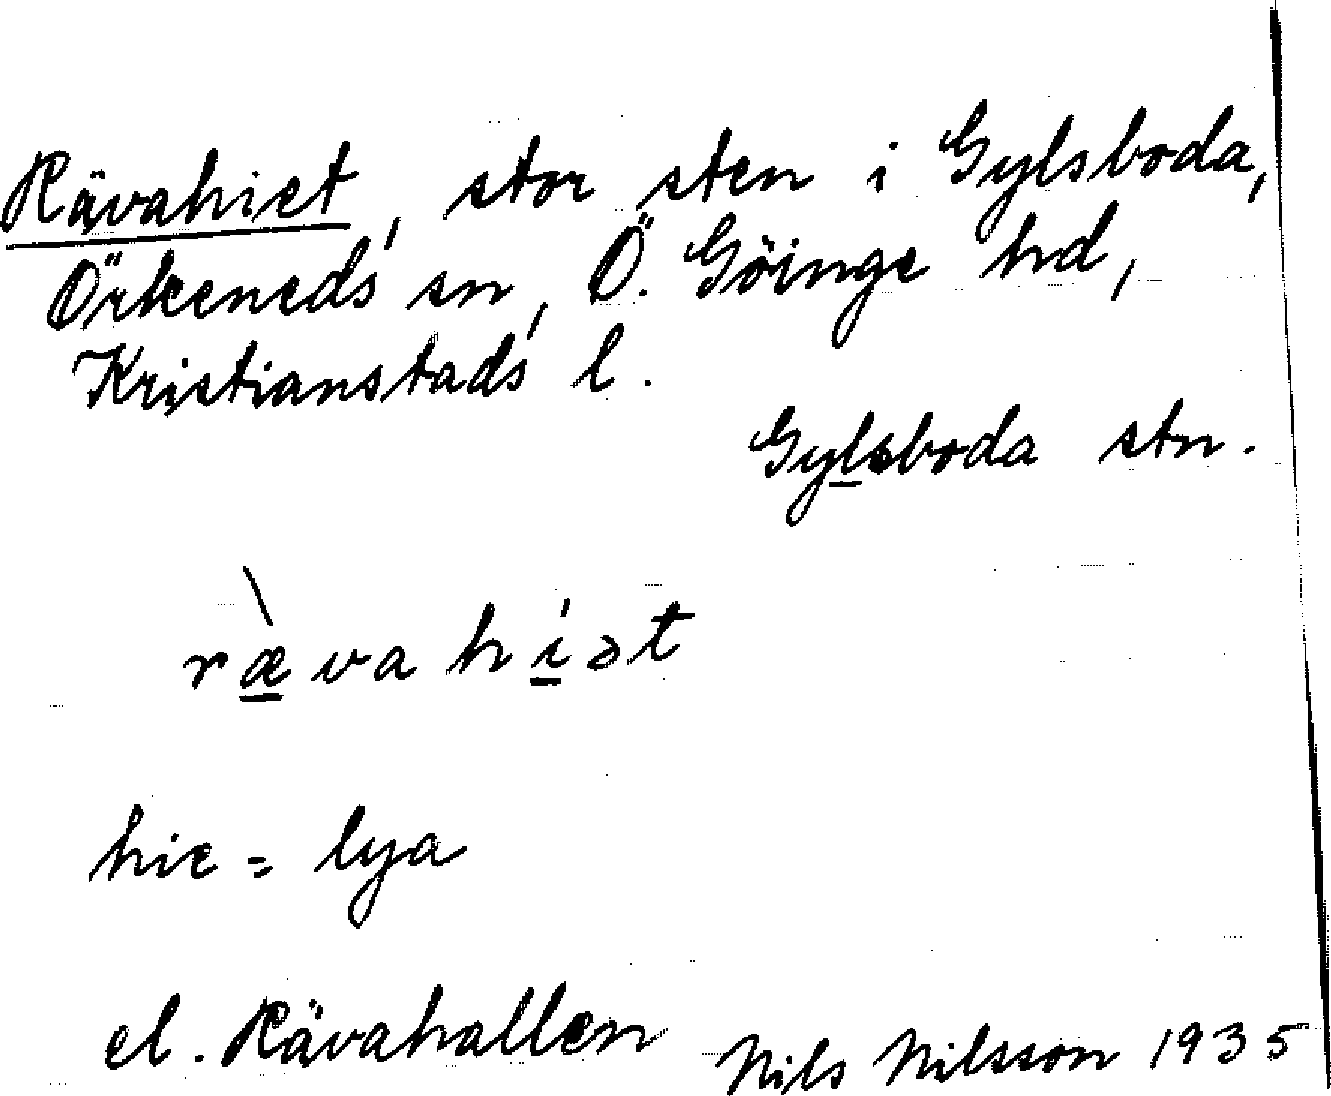 Rävahiet, stor sten i Gylsboda,
Örkeneds sn, Ö. Göinge hd,
Kristianstads l.
Gylsboda stn.
ræ̀vahíət
hie = lya
el. Rävahallen Nils Nilsson 1935